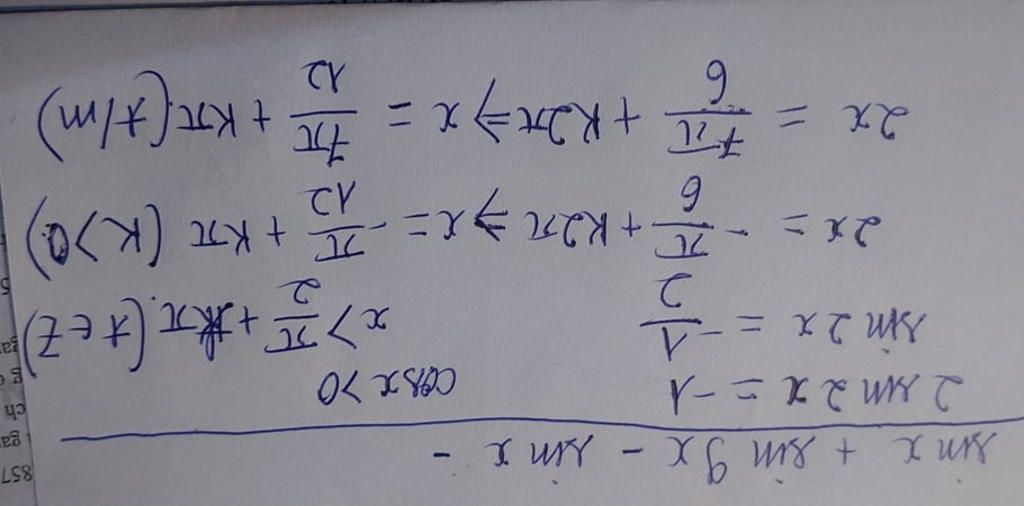 sin x + sin 9x - sin x -
2 sin 2x = -1 cosx > 0
sin 2x = -1/2 x > π/2 + kπ. (t ∈ Z)
2x = -π/6 + k2π ⇒ x = -π/12 + kπ (k > 0)
2x = 7π/6 + k2π ⇒ x = 7π/12 + kπ. (t/m)
857